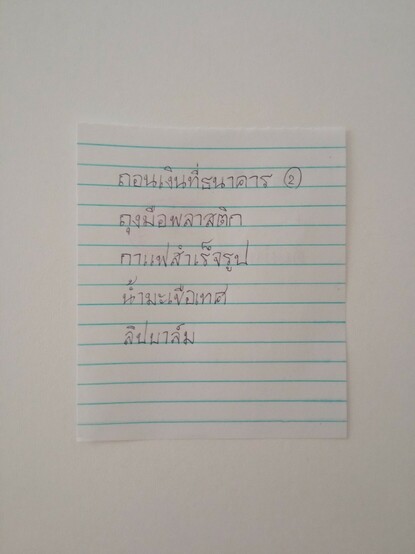 ถอนเงินที่ธนาคาร ②
ถุงมือพลาสติก
กาแฟสำเร็จรูป
น้ำมะเขือเทศ
ลิปบาล์ม